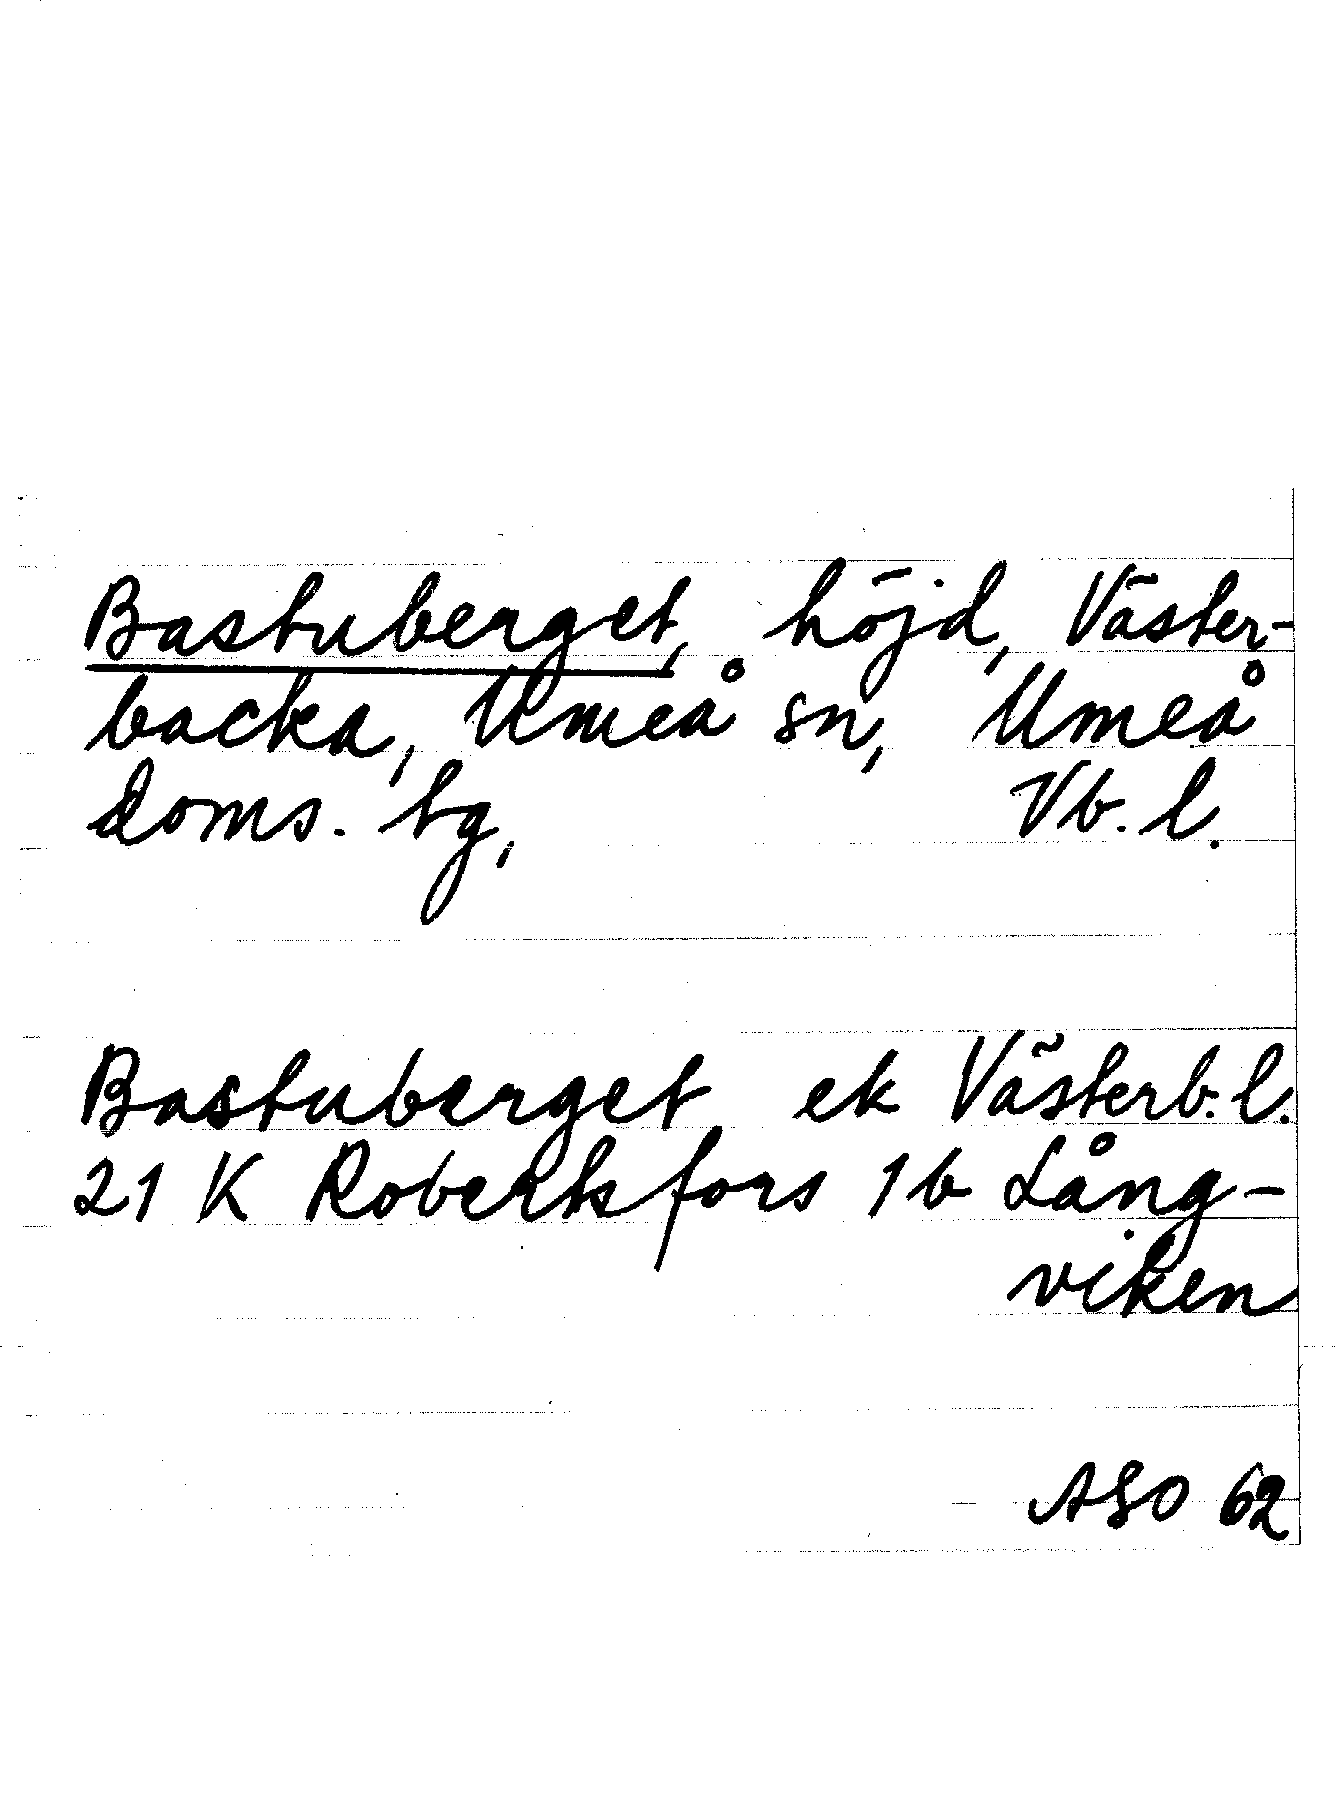 Bastuberget, höjd, Väster-
backa, Umeå sn, Umeå
doms. tg, Vb. l.
Bastuberget ek Västerb. l.
21 K Robertsfors 1b Lång-
viken
ASO 62